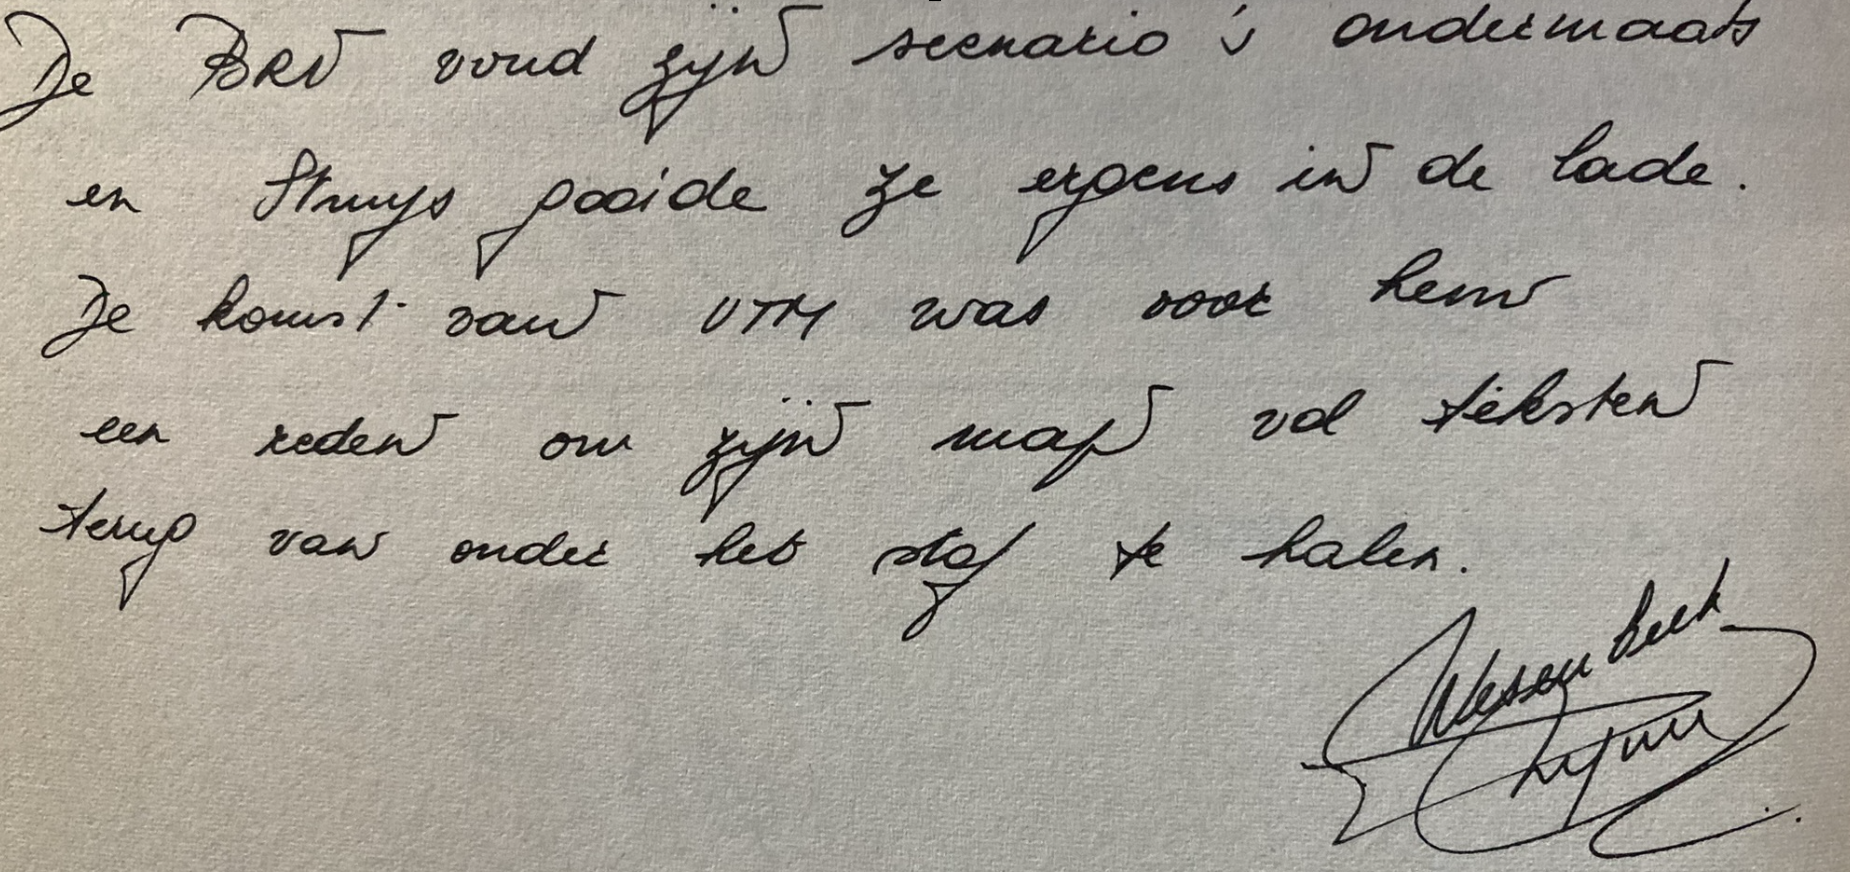 De BRT vond zijn scenario's ondermaats
en Struys gooide ze ergens in de lade.
De komst van VTM was voor hem
een reden om zijn map vol teksten
terug van onder het stof te halen.
Wesenbeek